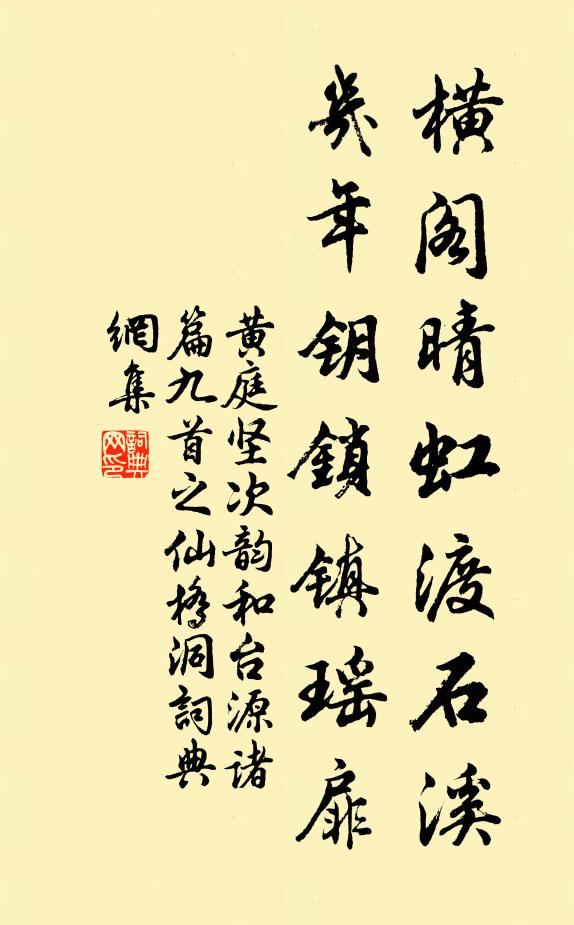 橫阁晴虹渡石溪
几年钥鎖镇瑶扉
黄庭坚次韵和台源诸
篇九首之仙橋洞詞典
網集
詞典網印